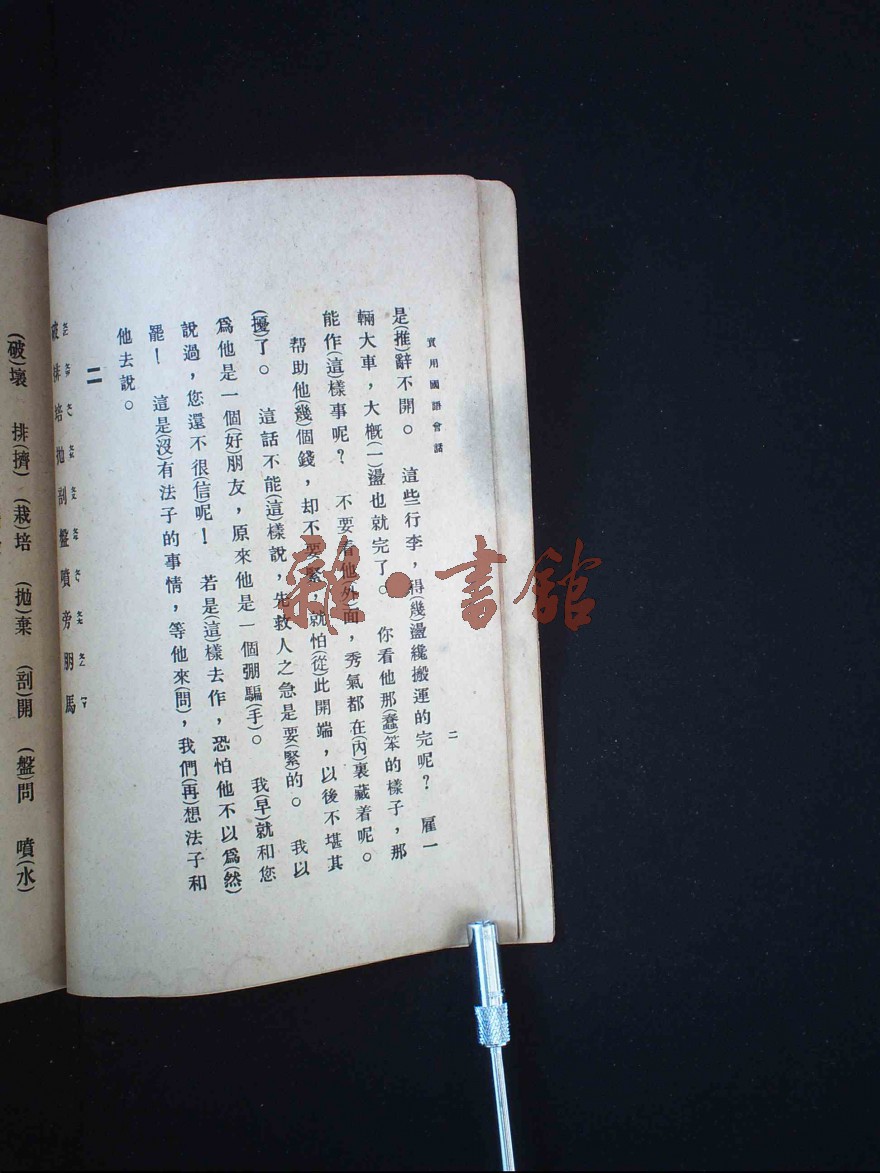 實用國語會話
二
是(推)辭不開。 這些行李，得(幾)盪纔搬運的完呢？ 雇一
輛大車，大槪(一)盪也就完了。 你看他那(蠢)笨的樣子，那
能作(這)樣事呢？ 不要看他(外)面，秀氣都在(內)裏藏着呢。
帮助他(幾)個錢，却不要緊，就怕(從)此開端，以後不堪其
(擾)了。 這話不能(這)樣說，先救人之急是要(緊)的。 我以
爲他是一個(好)朋友，原來他是一個弸騙(手)。 我(早)就和您
說過，您還不很(信)呢！ 若是(這)樣去作，恐怕他不以爲(然)
罷！ 這是(沒)有法子的事情，等他來(問)，我們(再)想法子和
他去說。
二
破 排 培 拋 剖 盤 噴 旁 朋 馬
(破)壞 排(擠) (栽)培 (拋)棄 (剖)開 (盤)問 噴(水)
雜·書館